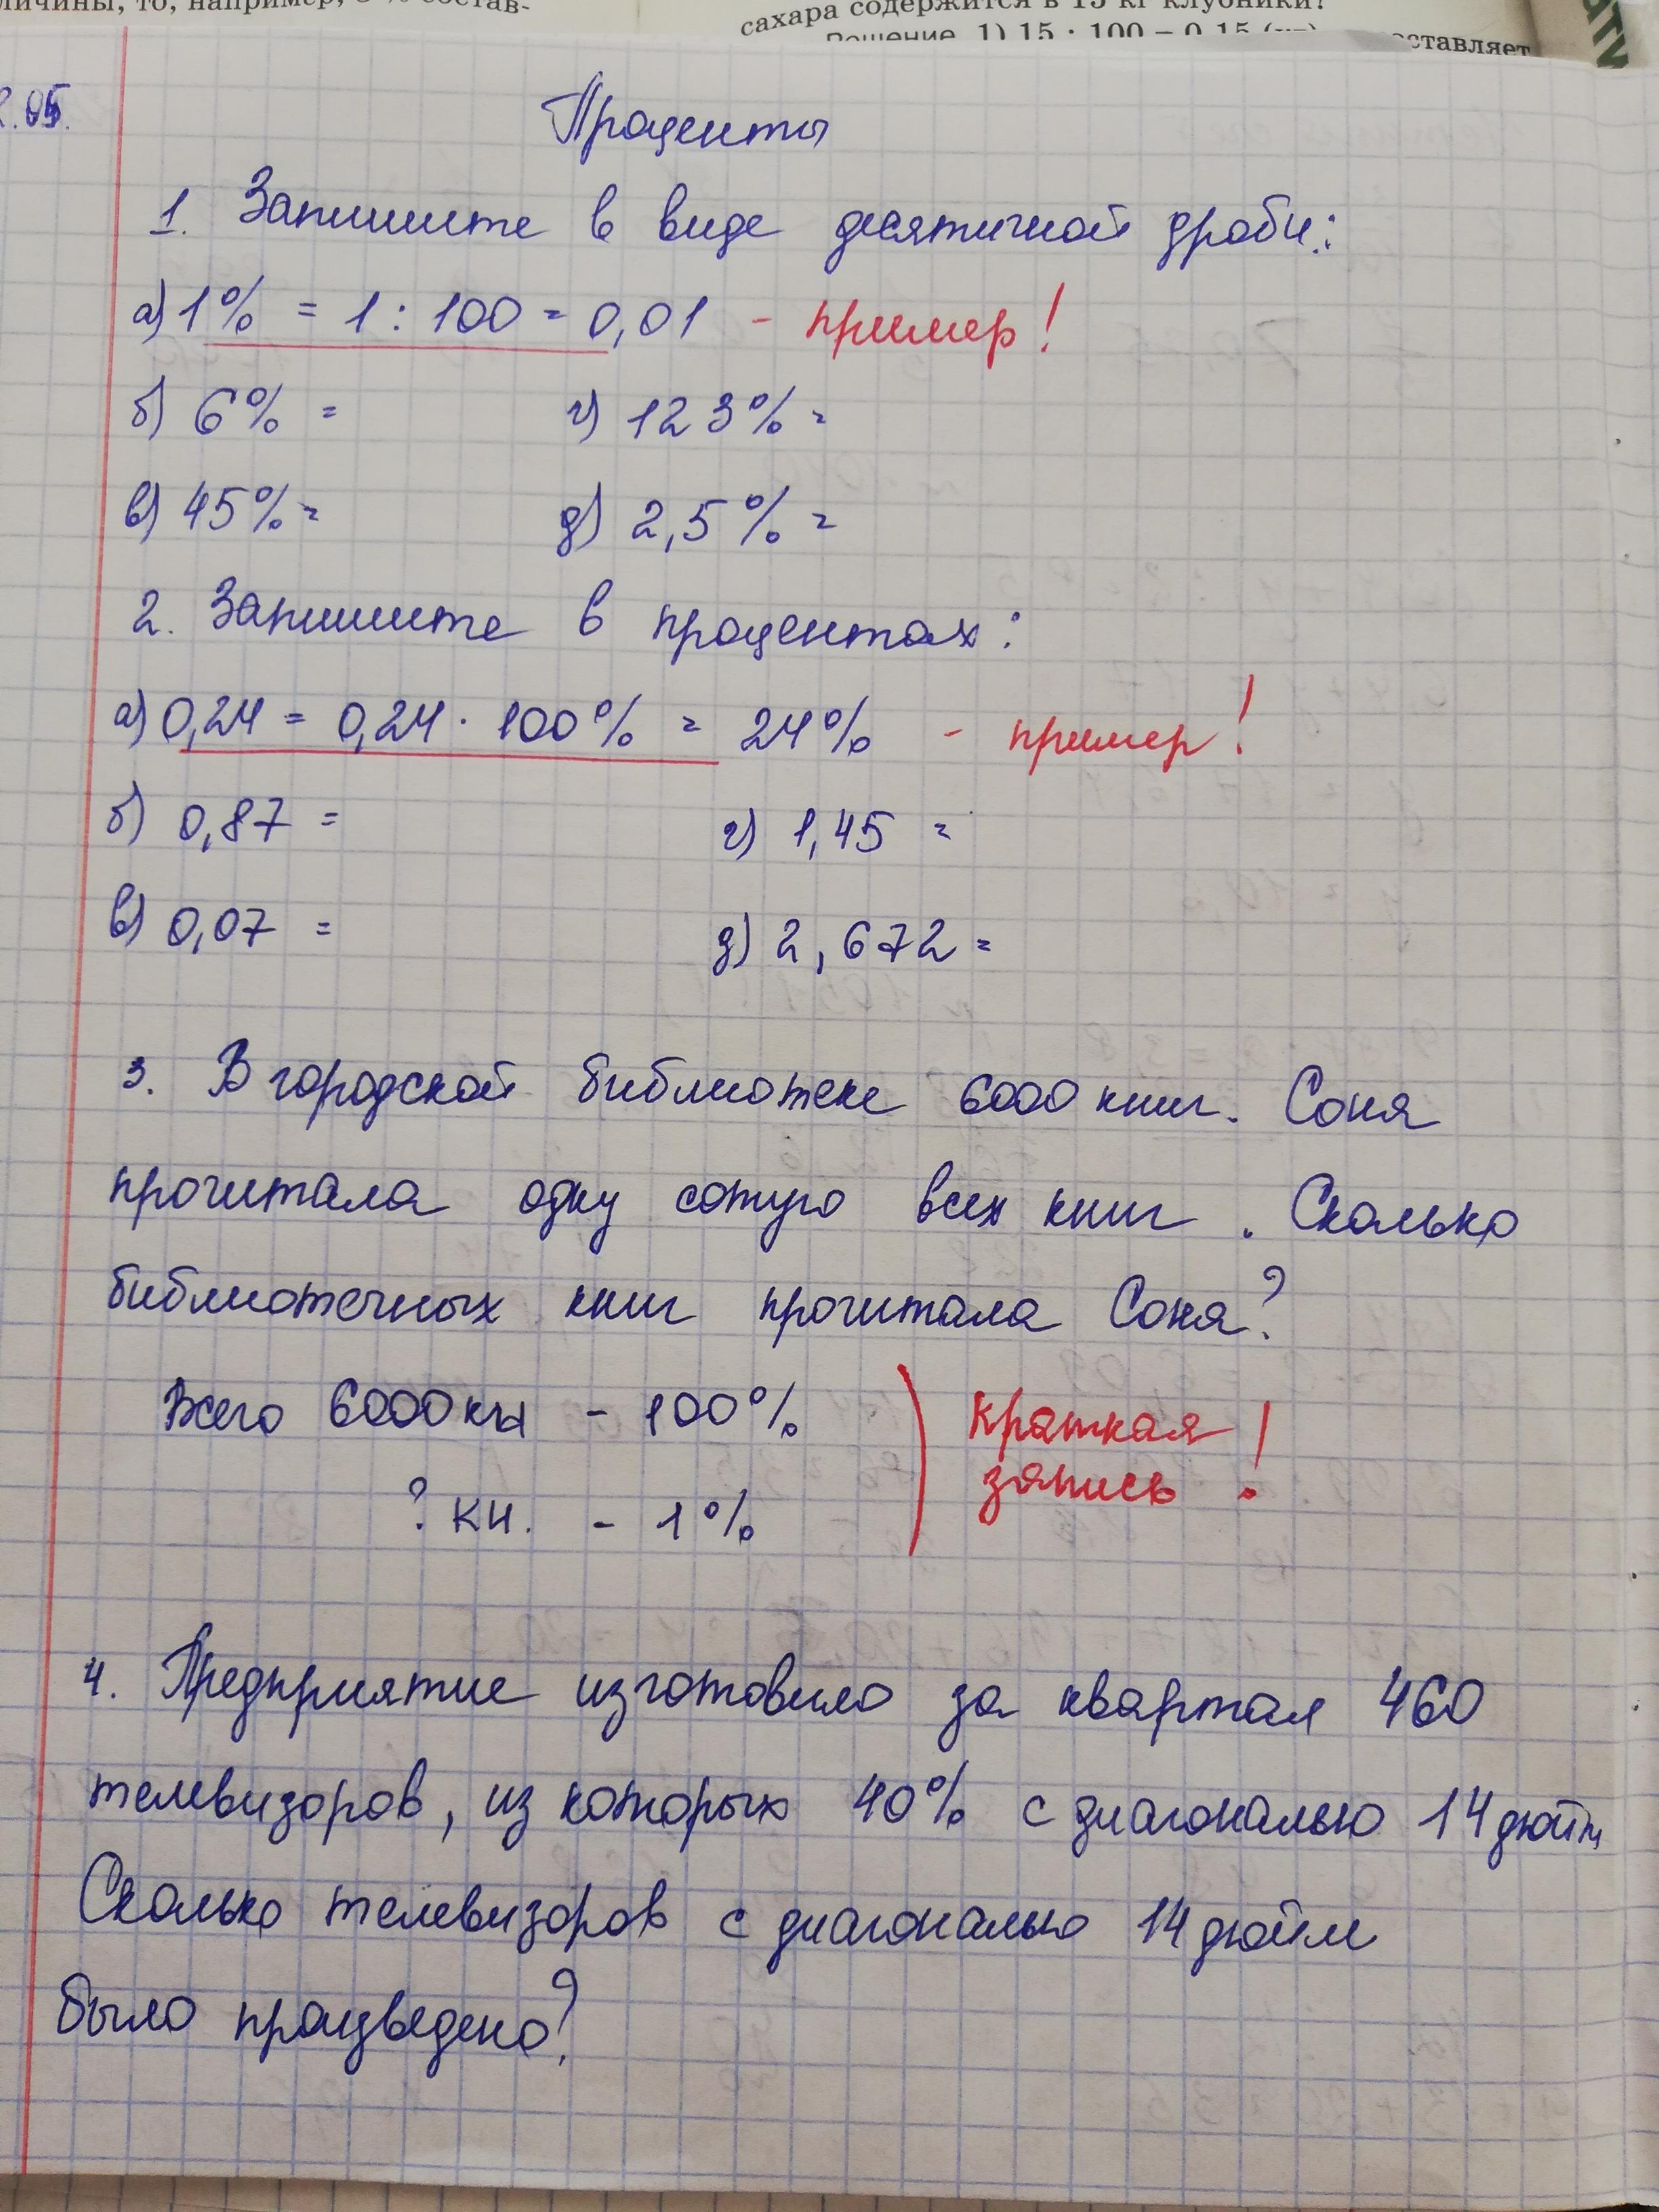 личины, то, например, 5 % состав-
сахара содержится в 15 кг клубники?
Решение. 1) 15 : 100 = 0,15 (кг)
составляет
.05.
Проценты
1. Запишите в виде десятичной дроби:
а) 1% = 1 : 100 = 0,01 - пример!
б) 6% = г) 123% =
в) 45% = д) 2,5% =
2. Запишите в процентах:
а) 0,24 = 0,24 · 100% = 24% - пример!
б) 0,87 = г) 1,45 =
в) 0,07 = д) 2,672 =
3. В городской библиотеке 6000 книг. Соня
прочитала одну сотую всех книг. Сколько
библиотечных книг прочитала Соня?
Всего 6000 кн - 100% ) Краткая
запись!
? кн. - 1%
4. Предприятие изготовило за квартал 460
телевизоров, из которых 40% с диагональю 14 дюйм
Сколько телевизоров с диагональю 14 дюйм
было произведено?